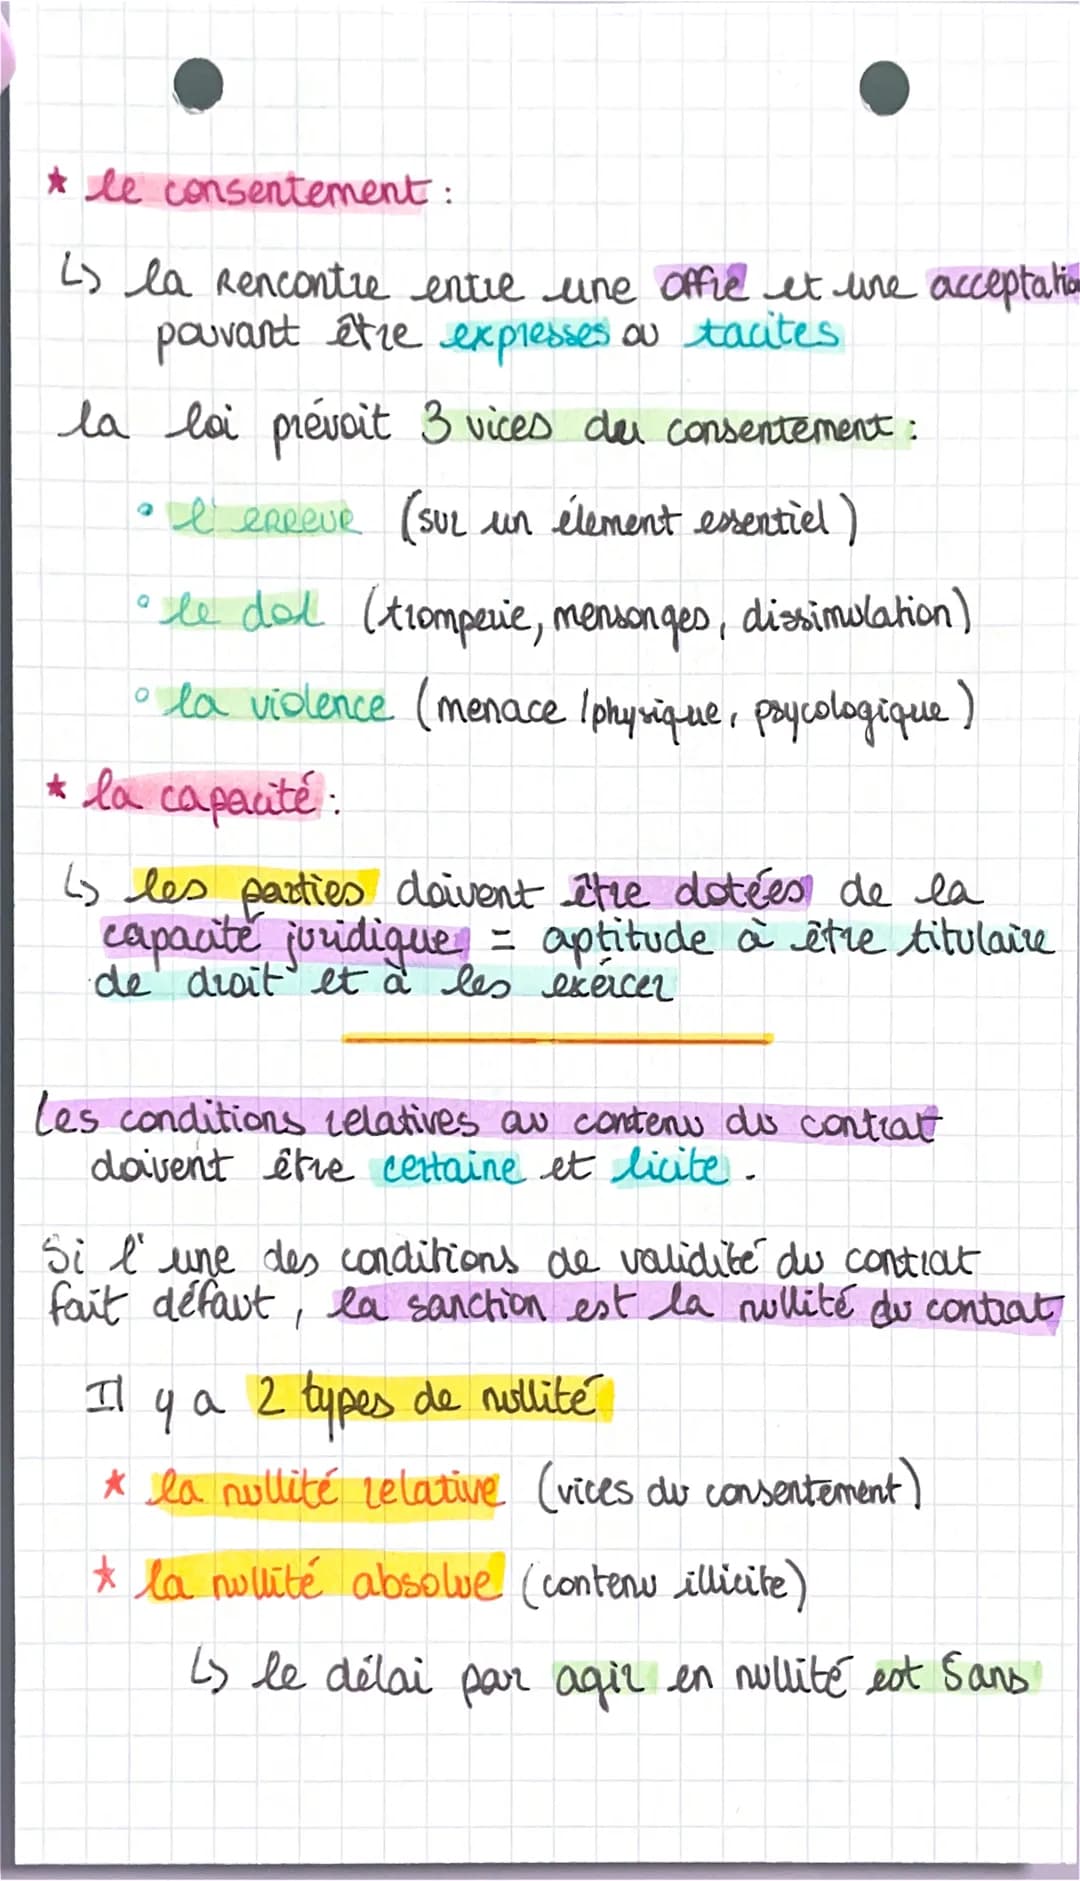 * le consentement :
↳ la rencontre entre une offre et une acceptation
pouvant être expresses ou tacites
la loi prévoit 3 vices du consentement :
• l'erreur (sur un élement essentiel)
• le dol (tromperie, mensonges, dissimulation)
• la violence (menace / physique, psycologique)
* la capacité :
↳ les parties doivent être dotées de la
capacité juridique = aptitude à être titulaire
de droit et à les exercer
Les conditions relatives au contenu du contrat
doivent être certaine et licite.
Si l'une des conditions de validité du contrat
fait défaut, la sanction est la nullité du contrat
Il y a 2 types de nullité
* la nullité relative (vices du consentement)
* la nullité absolue (contenu illicite)
↳ le délai par agir en nullité est 5 ans